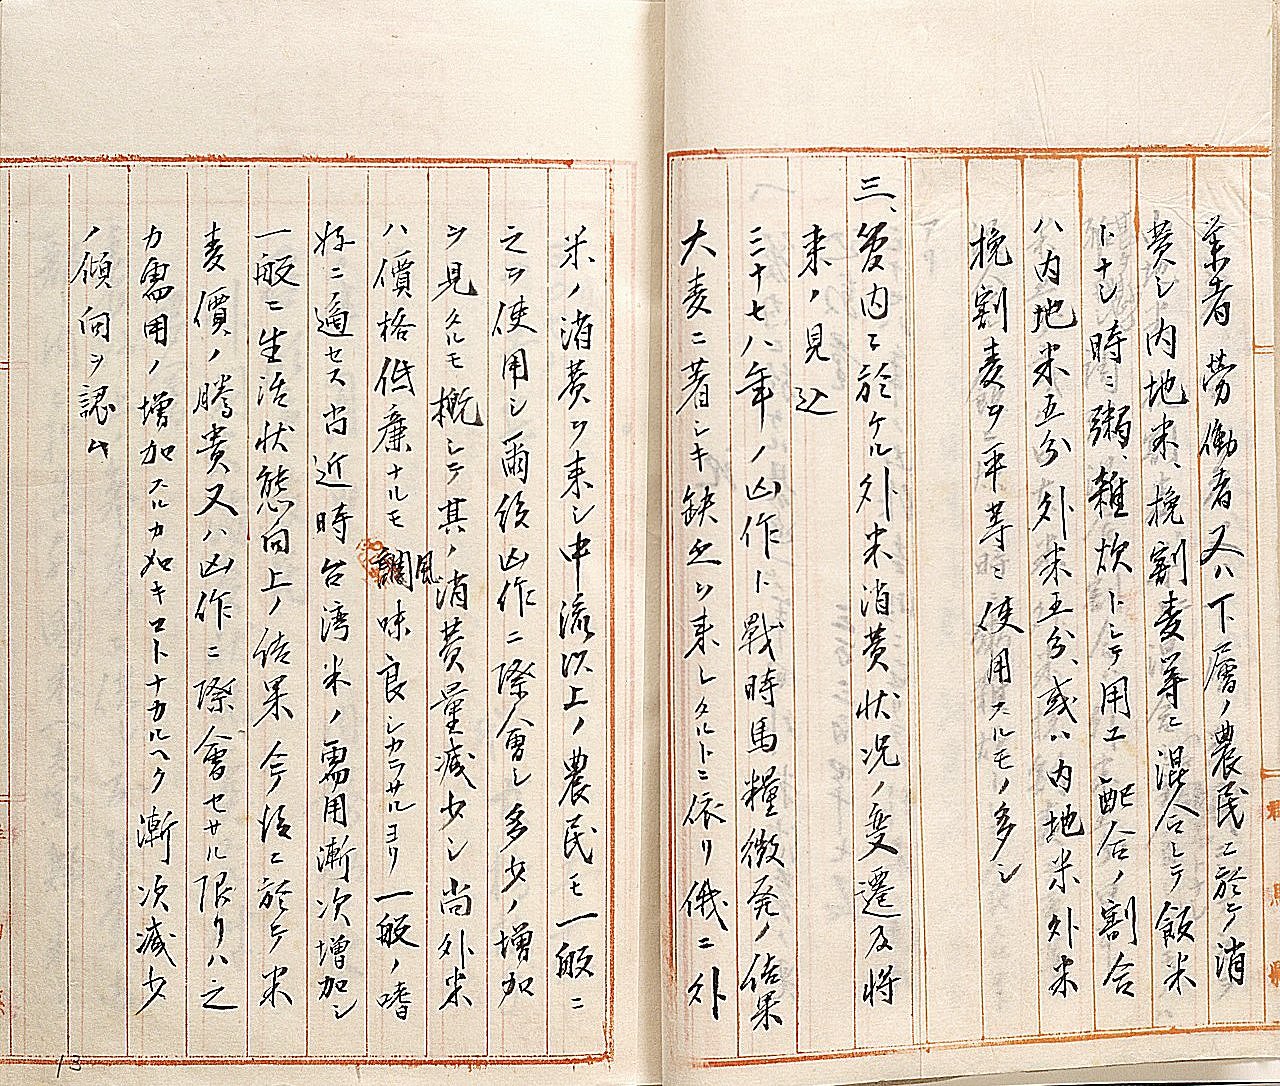 業者労働者又ハ下層ノ農民ニ於テ消
費シ内地米、挽割麦等ニ混合シテ飯米
トナシ時ニ粥、雑炊トシテ用エ配合ノ割合
ハ内地米五分外米五分、或ハ内地米外米
挽割麦ヲ平等ニ使用スルモノ多シ
三、管内ニ於ケル外米消費状況ノ変遷及将
来ノ見込
三十七八年ノ凶作ト戦時馬糧徴発ノ結果
大麦ニ著シキ缺乏ヲ来シタルトニ依リ俄ニ外
米ノ消費ヲ来シ中流以上ノ農民モ一般ニ
之ヲ使用シ爾後凶作ニ際會シ多少ノ増加
ヲ見タルモ概シテ其ノ消費量減少シ尚外米
ハ價格低廉ナルモ風味良シカラサルヨリ一般ノ嗜
好ニ適セス尚近時台湾米ノ需用漸次増加シ
一般ニ生活状態向上ノ結果今後ニ於テ米
麦價ノ騰貴又ハ凶作ニ際會セサル限リハ之
カ需用ノ増加スルカ如キコトナカルヘク漸次減少
ノ傾向ヲ認ム
13